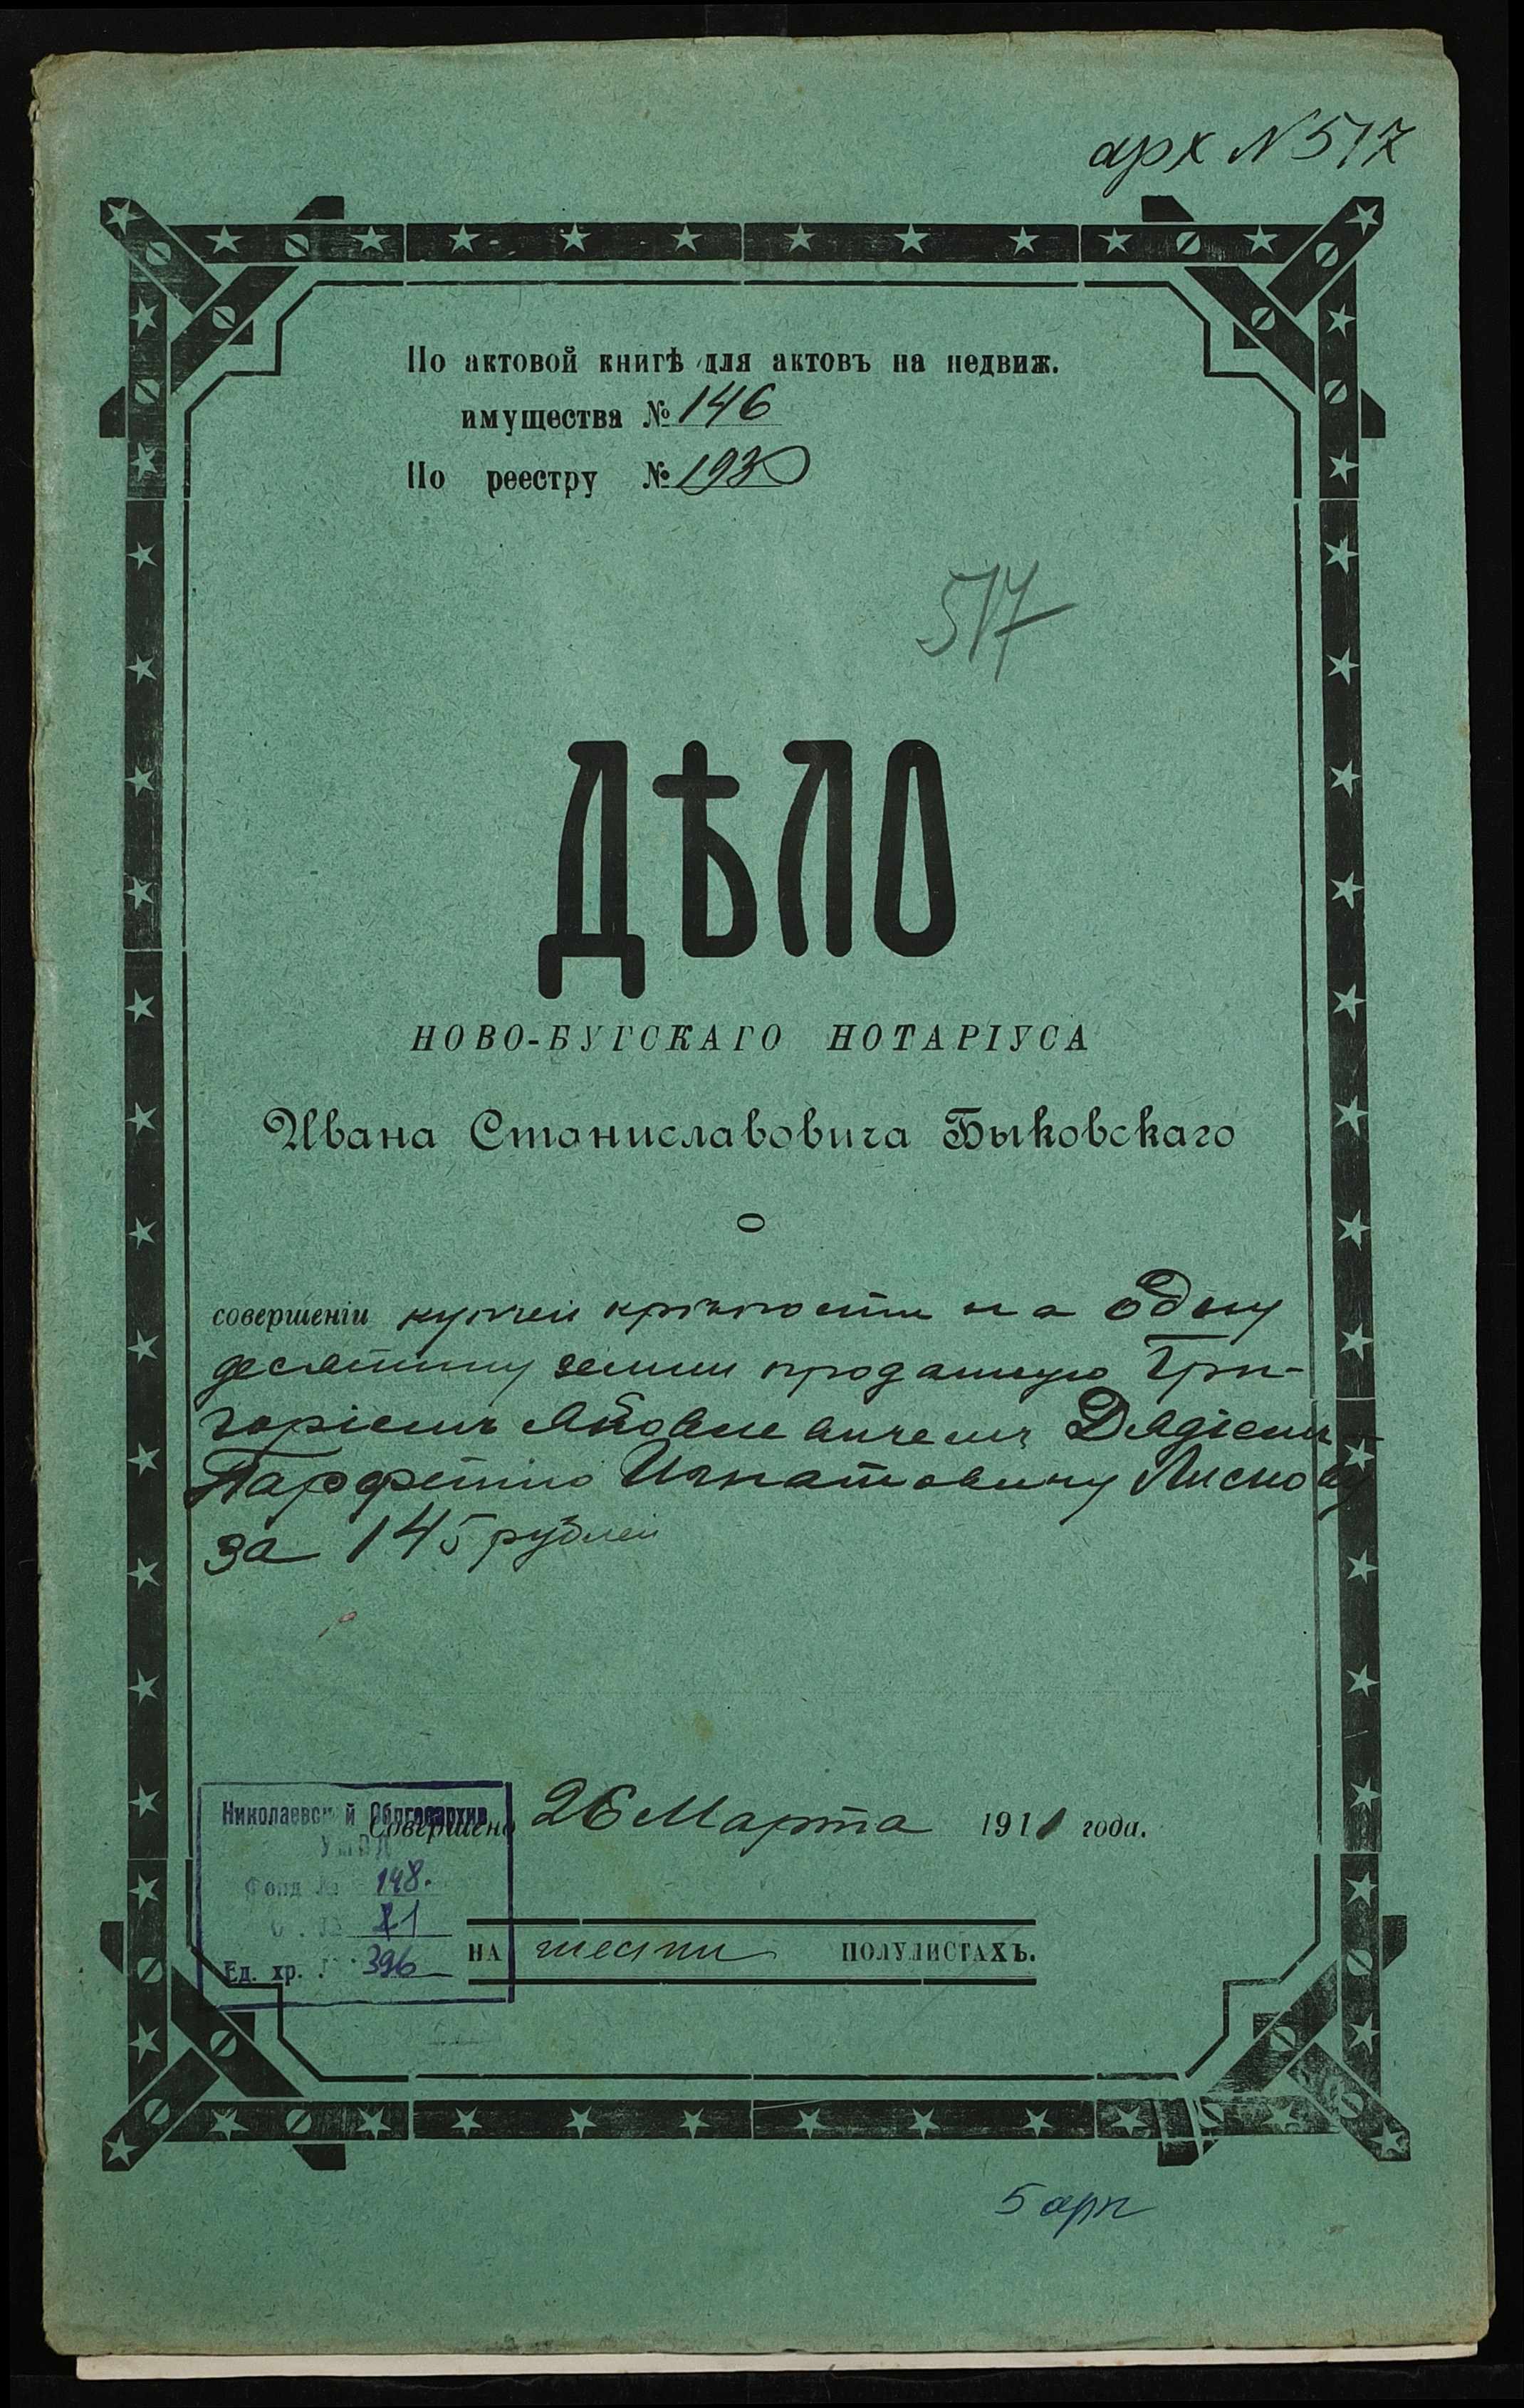 арх N 517
По актовой книгѣ для актовъ на недвиж.
имущества № 146
По реестру № 1930
517
ДѢЛО
НОВО-БУГСКАГО НОТАРІУСА
Ивана Станиславовича Быковскаго
О
совершеніи купчей крѣпости на одну
десятину земли проданную Гри-
горіемъ Яковлевичемъ
Парфенію Игнатовичу Лискову
за 145 рублей
Николаевский Облгосархив
Совершено 26 Марта 1911 года.
Фонд № 148.
1
Ед. хр. № 396
НА шести ПОЛУЛИСТАХЪ.
5 арк